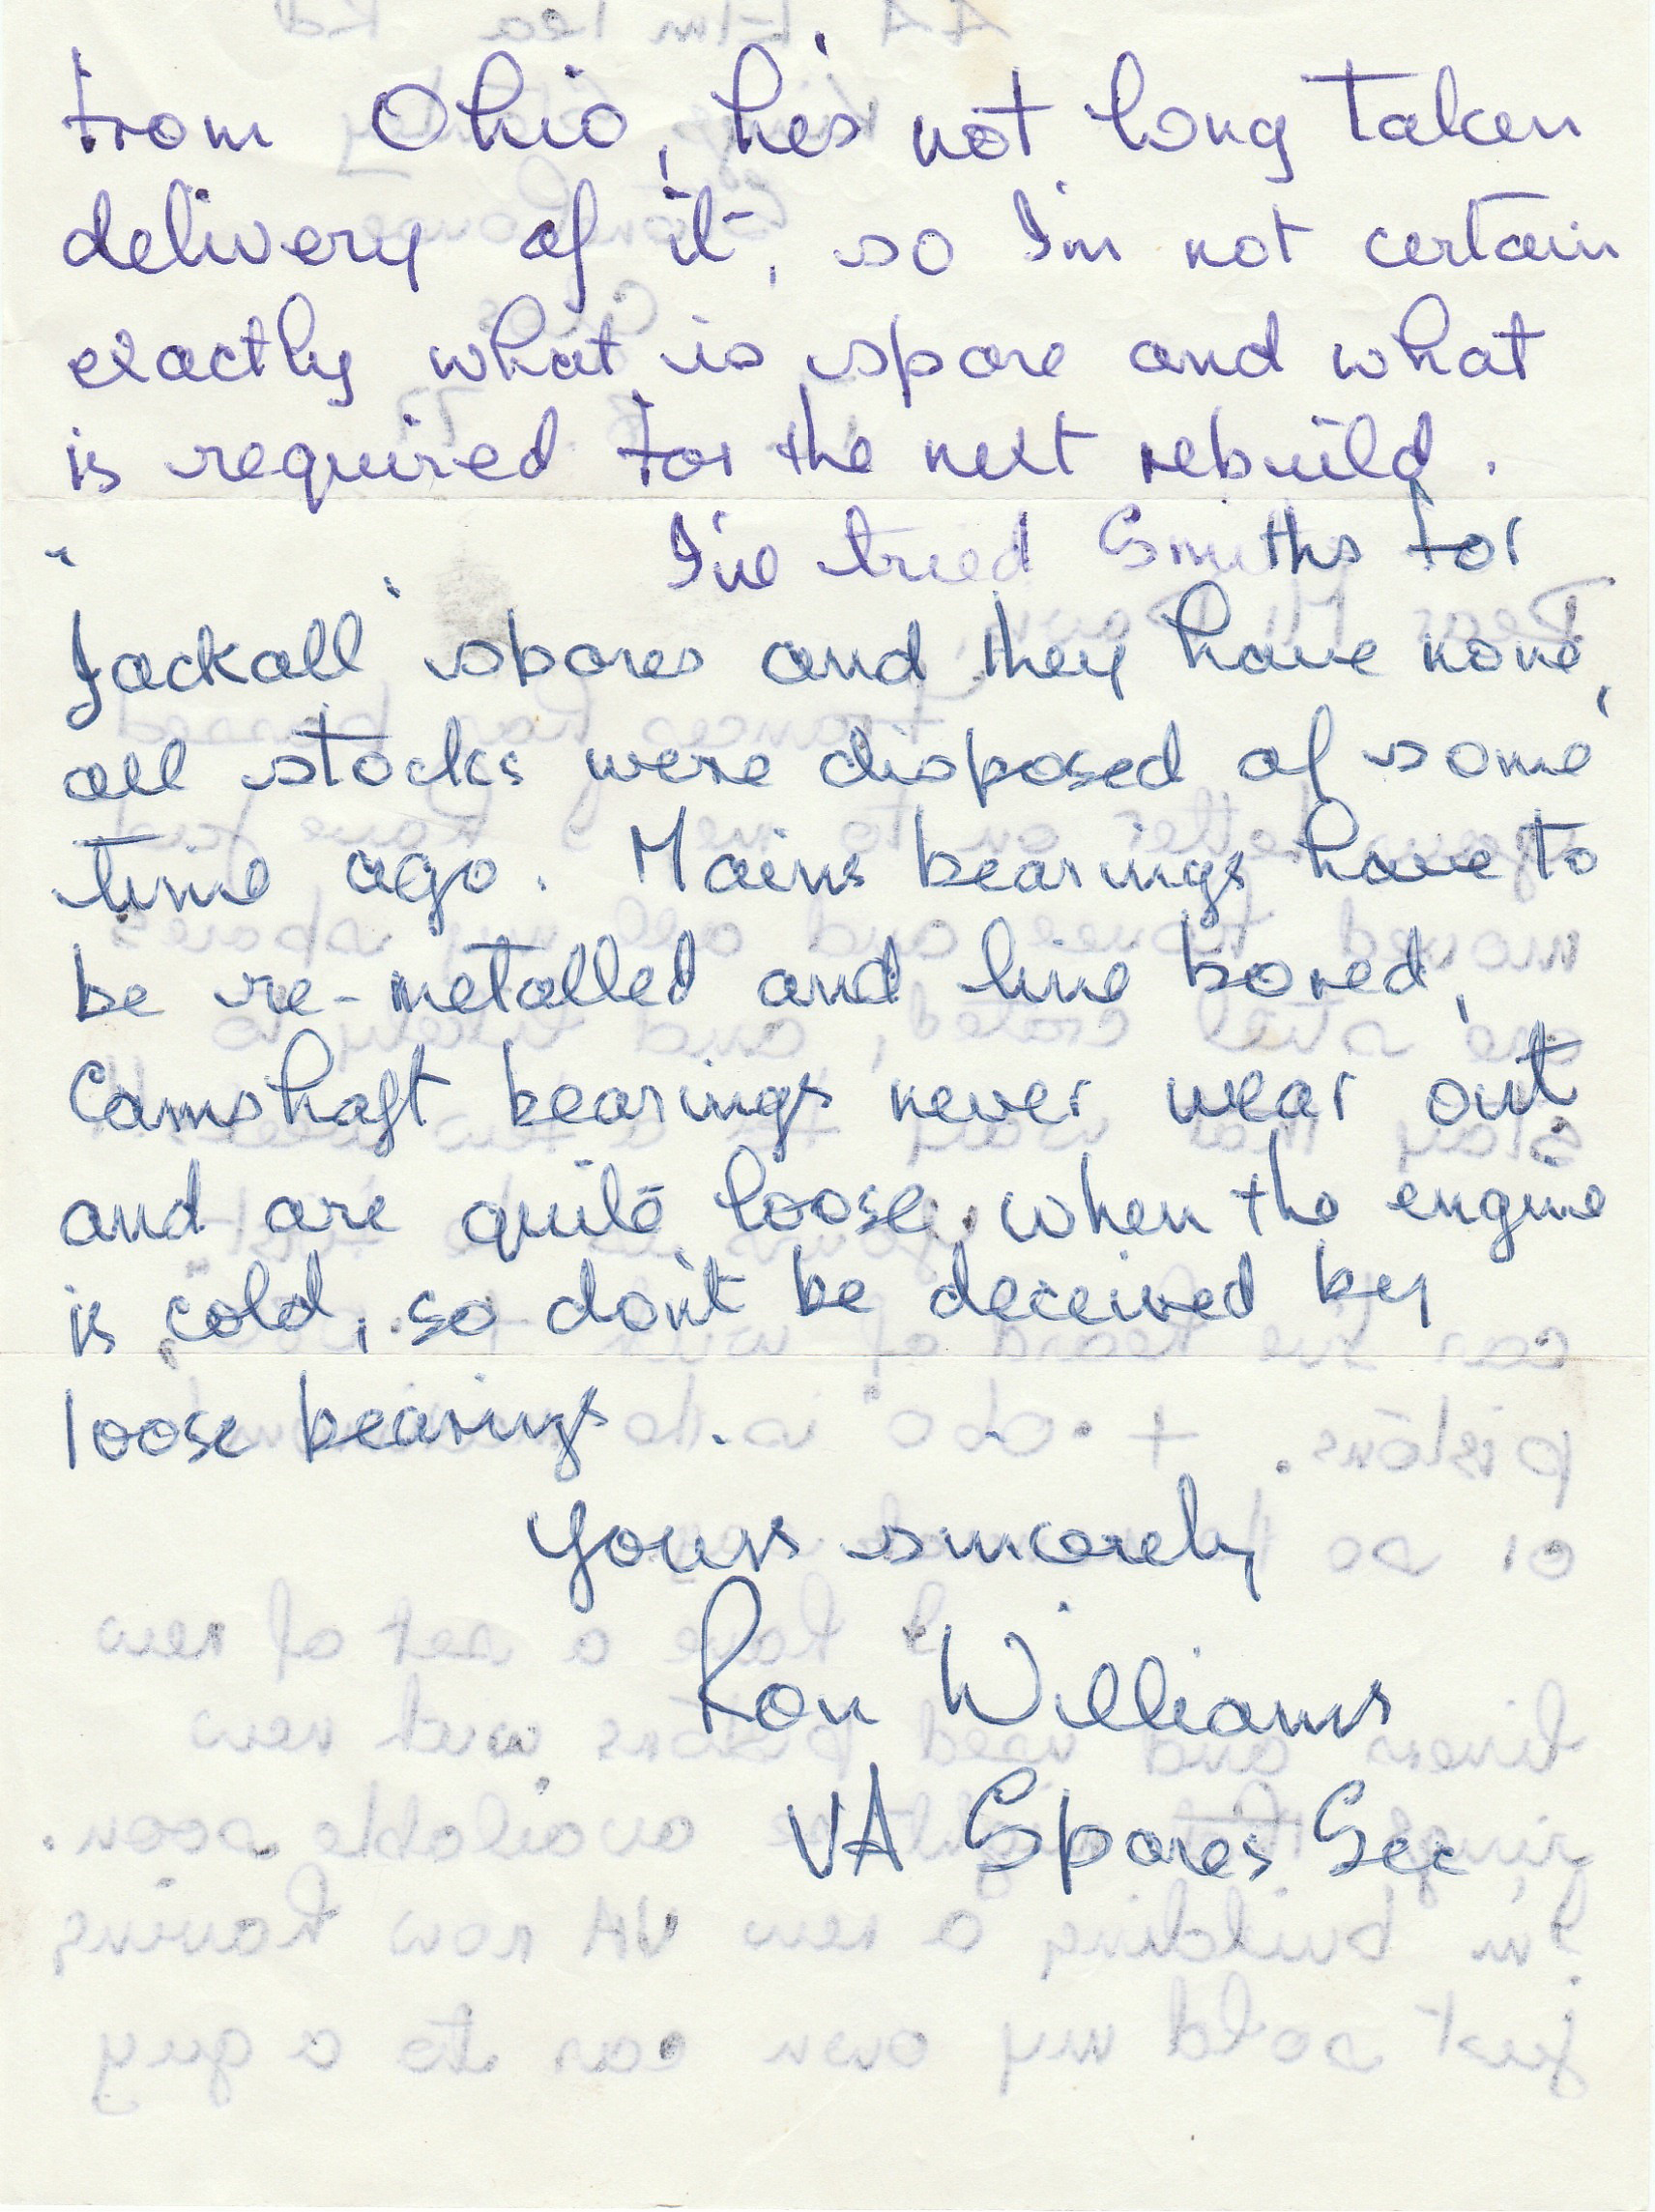 from Ohio, he's not long taken
delivery of it, so I'm not certain
exactly what is spare and what
is required for the next rebuild.
I've tried Smiths for
"Jackall" spares and they have none,
all stocks were disposed of some
time ago. Mains bearings have to
be re-metalled and line bored,
Camshaft bearings never wear out
and are quite loose, when the engine
is cold, so don't be deceived by
loose bearings.
Yours sincerely
Ron Williams
VA Spares Sec